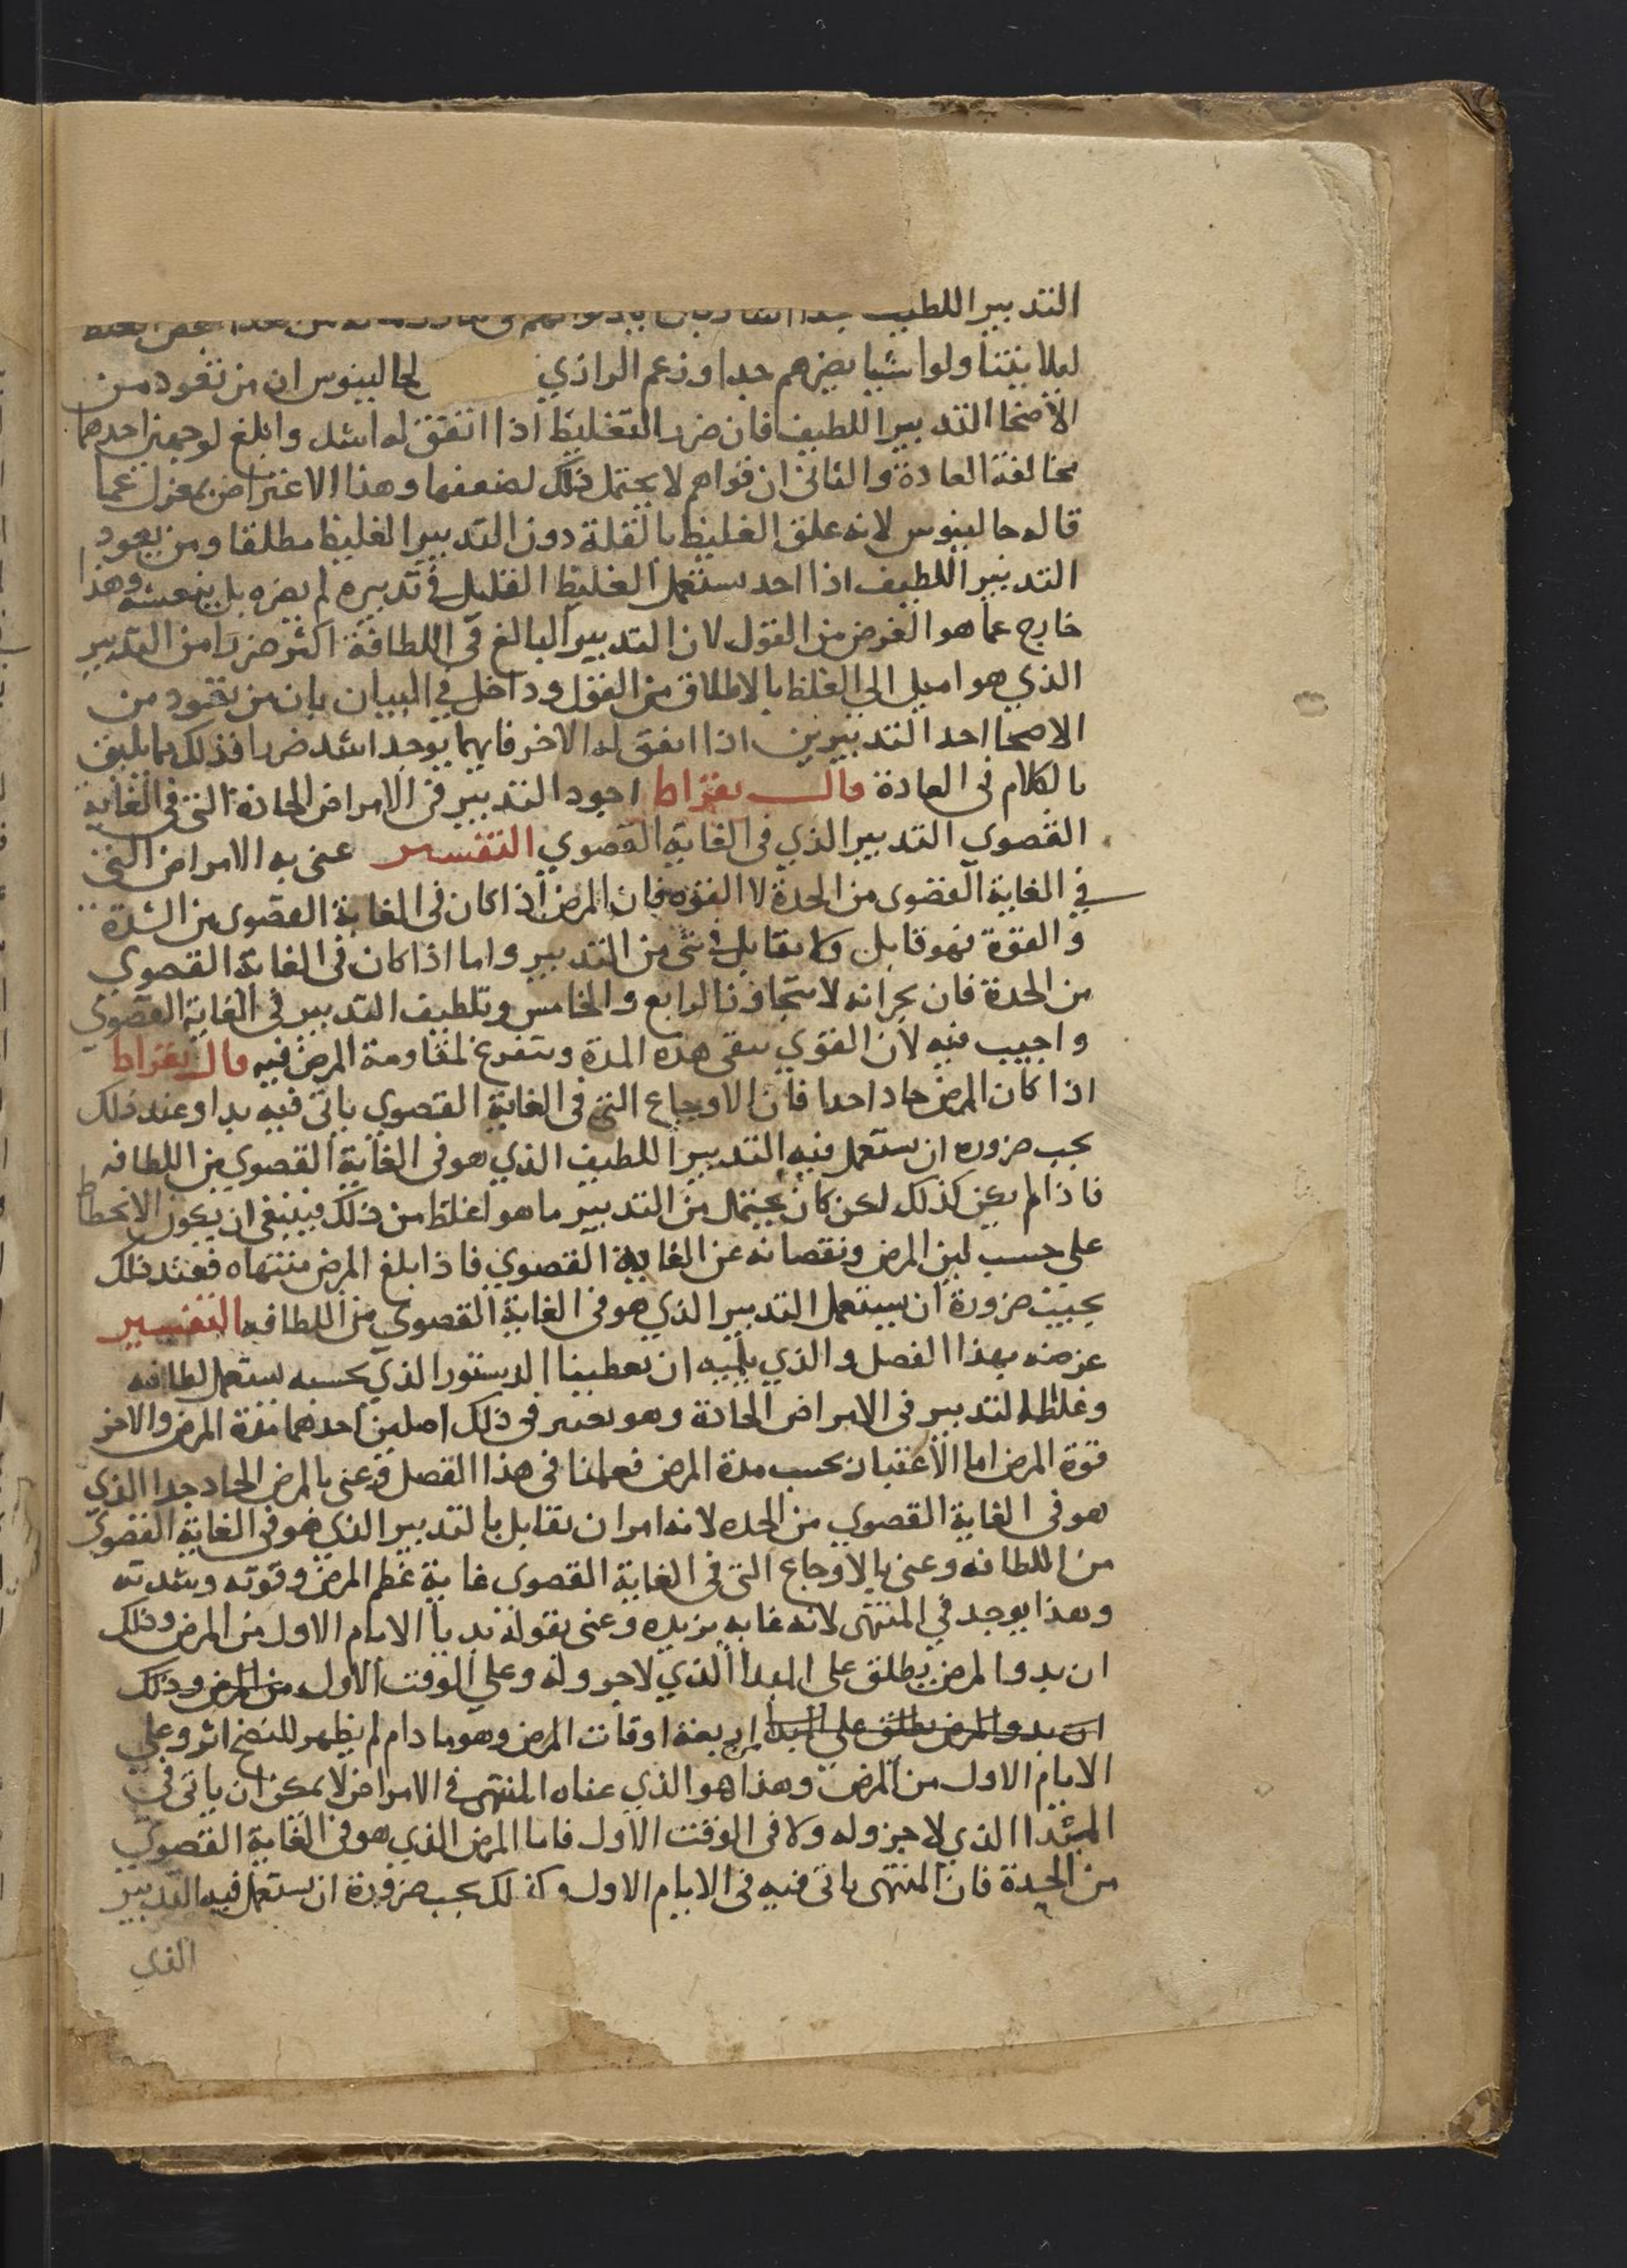 التدبير اللطيف جدا
ليلا يتناولوا شيا يضرهم جدا وزعم الرازي لجالينوس ان من تعود من
الاصحا التدبير اللطيف فان ضرر التغليظ اذا اتفق له اشد وابلغ لوجهين احدهما
مخالفة العادة والثانى ان قواهم لا يحتمل ذلك لضعفها وهذا الاعتراض بمعزل عما
قاله جالينوس لانه علق الغليظ بالقلة دون التدبير الغليظ مطلقا ومن يعود
التدبير اللطيف اذا احد يستعمل الغليظ القليل فى تدبيره لم يضره بل ينعشه وهذا
خارج عما هو الغرض من القول لان التدبير البالغ فى اللطافة اكثر ضررا من التدبير
الذي هو اميل الى الغلظ بالاطلاق من القول وداخل في البيان بان من تعود من
الاصحا احد التدبيرين اذا اتفق له الاخر فايهما يوجد اشد ضررا فذلك بما يليق
بالكلام فى العادة قال بقراط اجود التدبير فى الامراض الحادة التى فى الغاية
القصوى التدبير الذي فى الغاية القصوي التفسير عنى به الامراض التى
في الغاية القصوى من الحدة لا القوه فان المرض اذا كان فى الغاية القصوى من الشدة
والقوة فهو قاتل ولا يقابل فى شى من التدبير واما اذا كان فى الغاية القصوي
من الحدة فان بحرانه لا يتجاوز الرابع والخامس وتلطيف التدبير فى الغاية القصوي
واجيب فيه لان القوي يبقى هذه المدة ويتفرغ لمقاومة المرض فيه قال بقراط
اذا كان المرض حادا جدا فان الاوجاع التى فى الغاية القصوي ياتى فيه بدا وعند ذلك
يجب ضروره ان يستعمل فيه التدبير اللطيف الذي هو فى الغاية القصوي من اللطافه
فاذا لم يكن كذلك لكن كان يحتمل من التدبير ما هو اغلظ من ذلك فينبغى ان يكون الانحطاط
على حسب لين المرض ونقصانه عن الغاية القصوي فاذا بلغ المرض منتهاه فعند ذلك
يجب ضرورة ان يستعمل التدبير الذي هو فى الغاية القصوى من اللطافه التفسير
غرضه بهذا الفصل والذي يليه ان يعطينا الدستور الذي بحسبه يستعمل لطافه
وغلظ التدبير فى الامراض الحادة وهو يعتبر فى ذلك اصلين احدهما مدة المرض والاخر
قوة المرض اما الاعتبار بحسب مدة المرض فعلمنا فى هذا الفصل وعنى بالمرض الحاد جدا الذي
هو فى الغاية القصوي من الحده لانه امر ان يقابل بالتدبير الذي هو فى الغاية القصوى
من اللطافه وعنى بالاوجاع التى فى الغاية القصوى غاية عظم المرض وقوته وشدته
وهذا يوجد في المنتهى لانه غايه يزيده وعنى بقوله بديا الايام الاول من المرض وذلك
ان بدو المرض يطلق على المبدا الذي لا جز وله وعلي الوقت الاول من المرض وذلك
ان بدو المرض يطلق على المبدا اربعة اوقات المرض وهو ما دام لم يظهر للنضج اثر وعلي
الايام الاول من المرض وهذا هو الذي عناه المنتهى في الامراض لا يمكن ان ياتى فى
المبتدا الذي لا جز وله ولا فى الوقت الاول فاما المرض الذي هو فى الغاية القصوي
من الحدة فان المنتهى ياتى فيه فى الايام الاول وكذلك يجب ضرورة ان يستعمل فيه التدبير
الذي